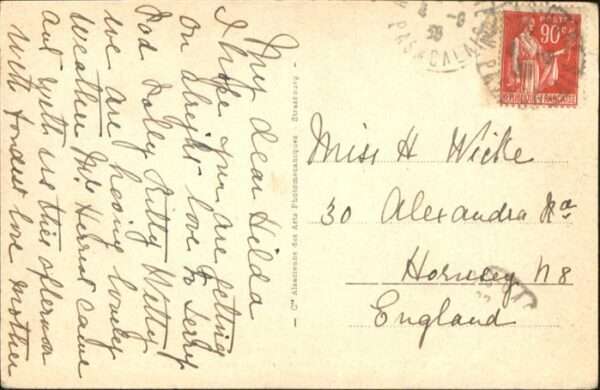 My dear Hilda
I hope you are getting
on alright love to Jerry
Pod Holly Kitty Witty
we are having lovely
weather Mrs came
and with us this afternoon
with fondest love mother
Cie Alsacienne des Arts Photomécaniques - Strasbourg
PAS A CALAIS
POSTES
90c
REPUBLIQUE FRANÇAISE
Miss H Wicke
30 Alexandra Rd
Hornsey N8
England